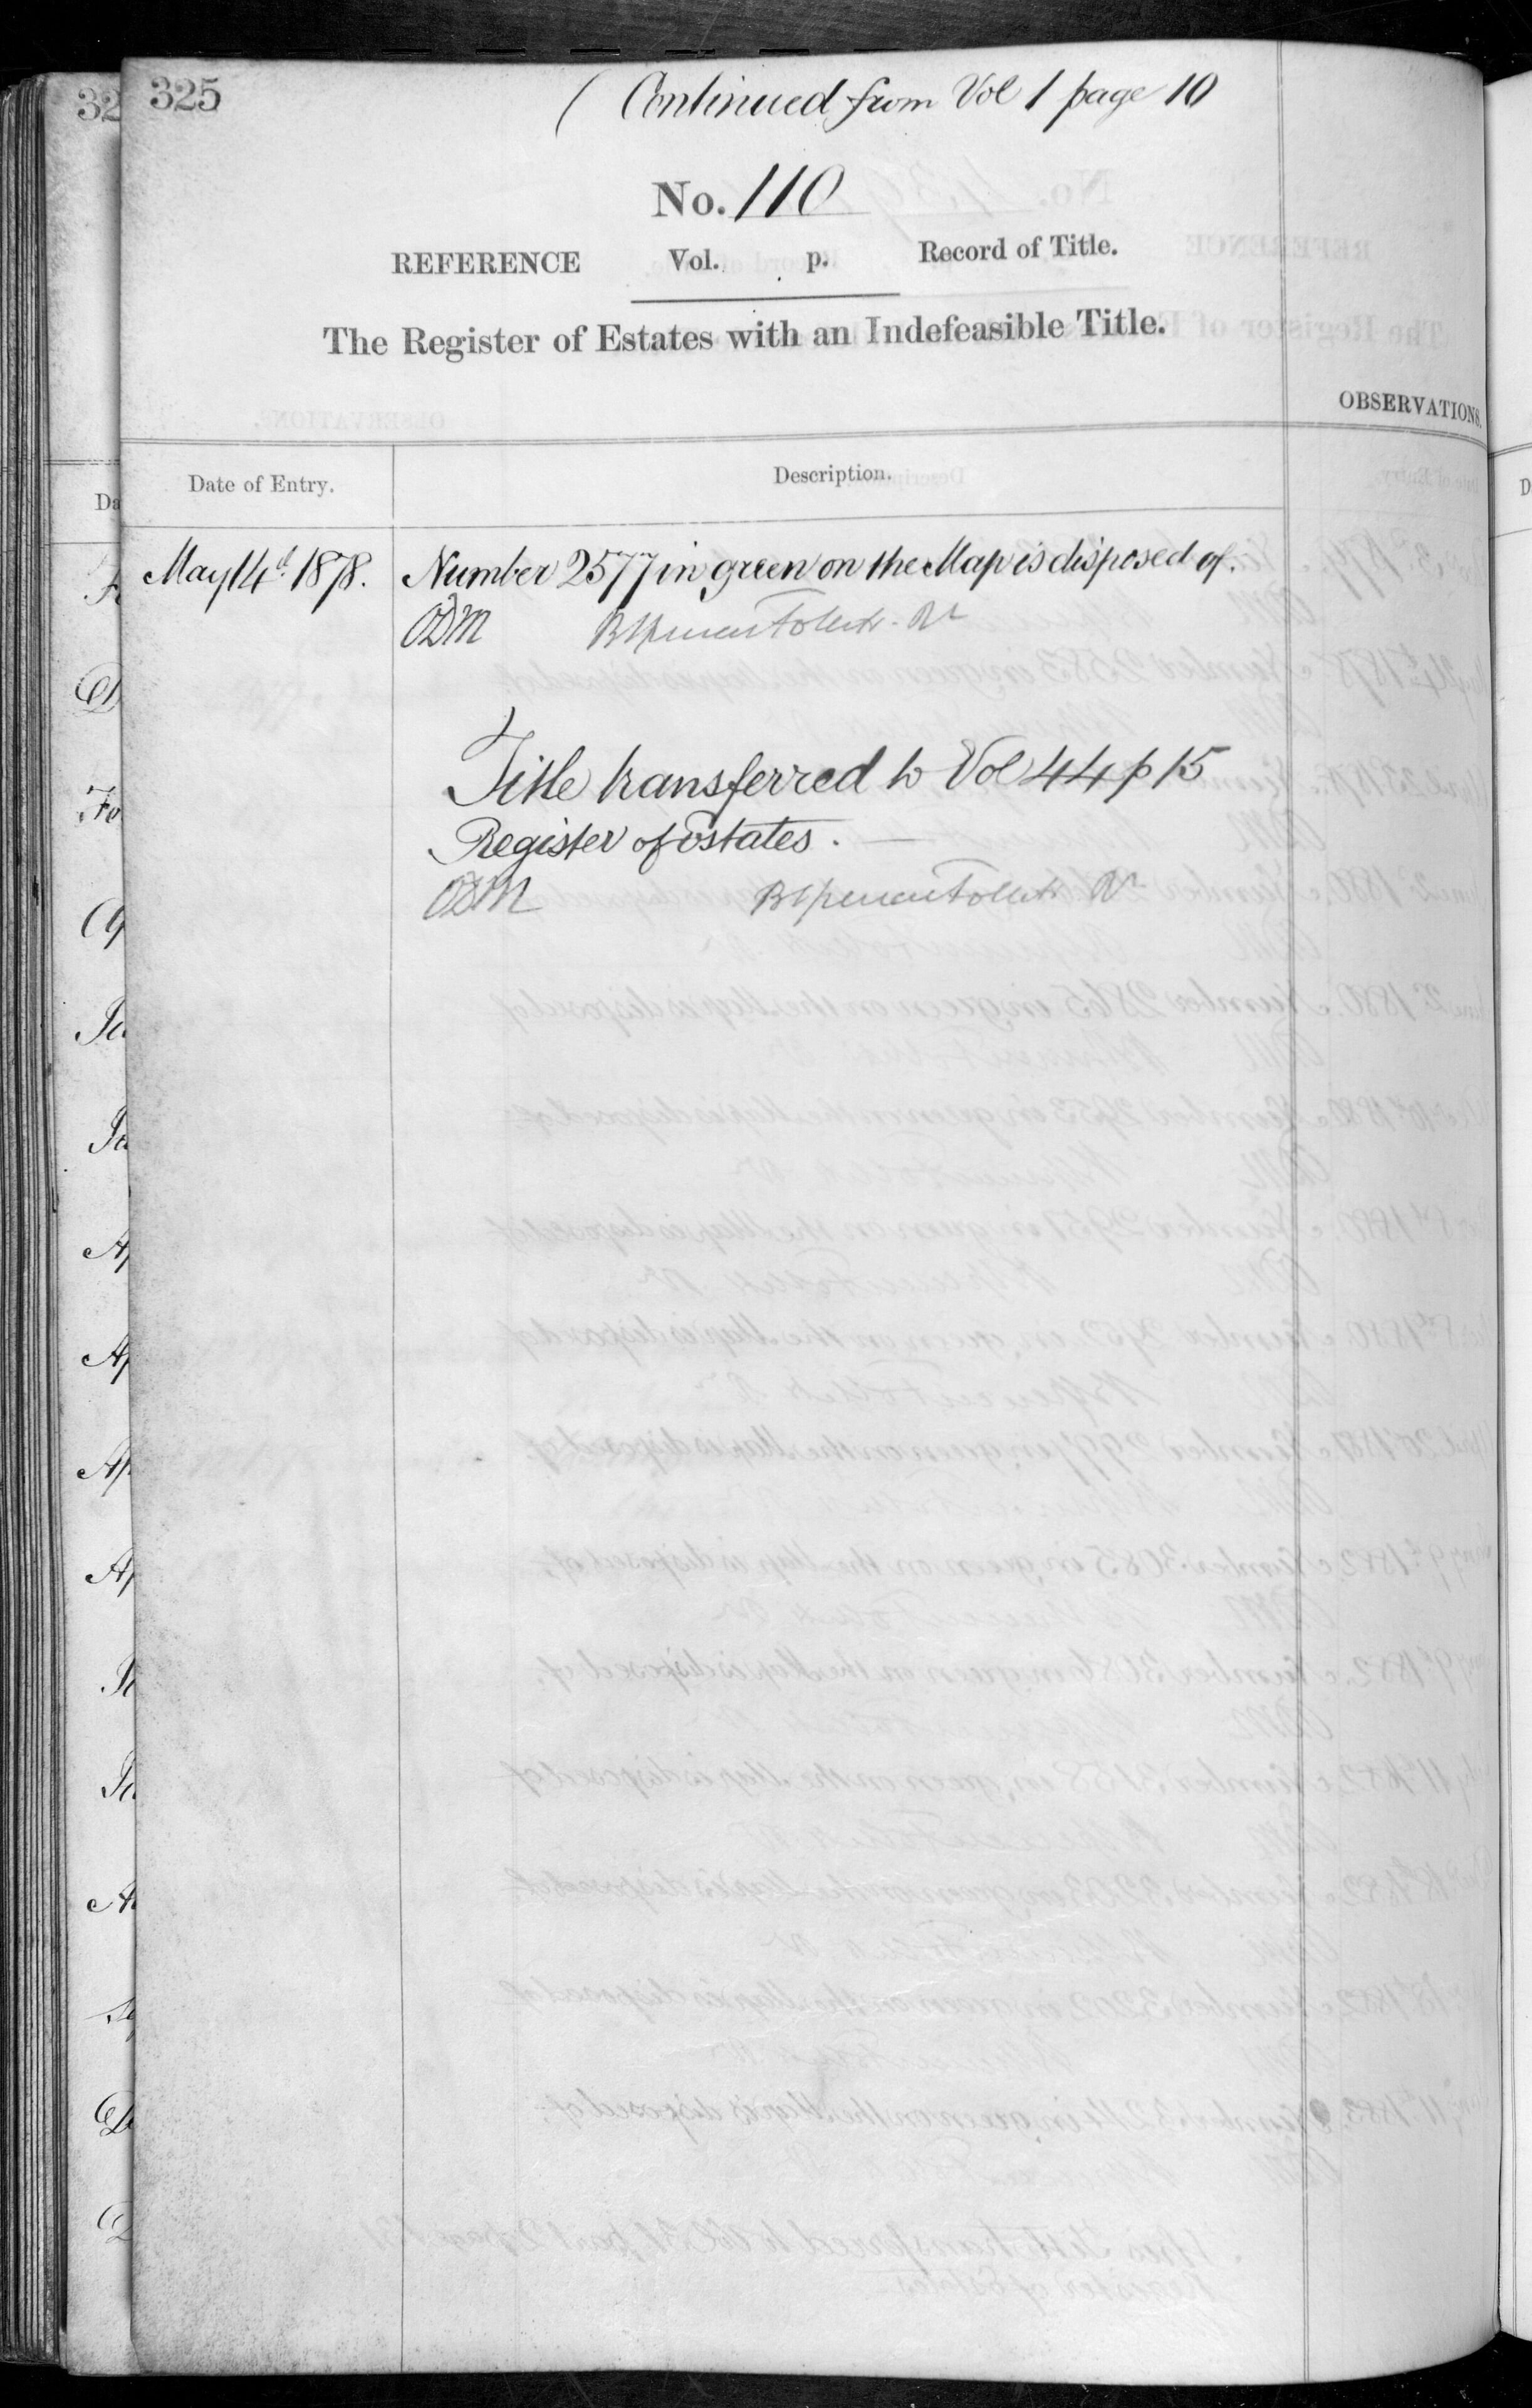 325
(Continued from Vol 1 page 10
No. 110
REFERENCE Vol. p. Record of Title.
The Register of Estates with an Indefeasible Title.
OBSERVATIONS.
Date of Entry. Description.
May 14th 1878. Number 2577 in green on the Map is disposed of.
ODM
Title transferred to Vol 44 p 15
Register of Estates.
ODM